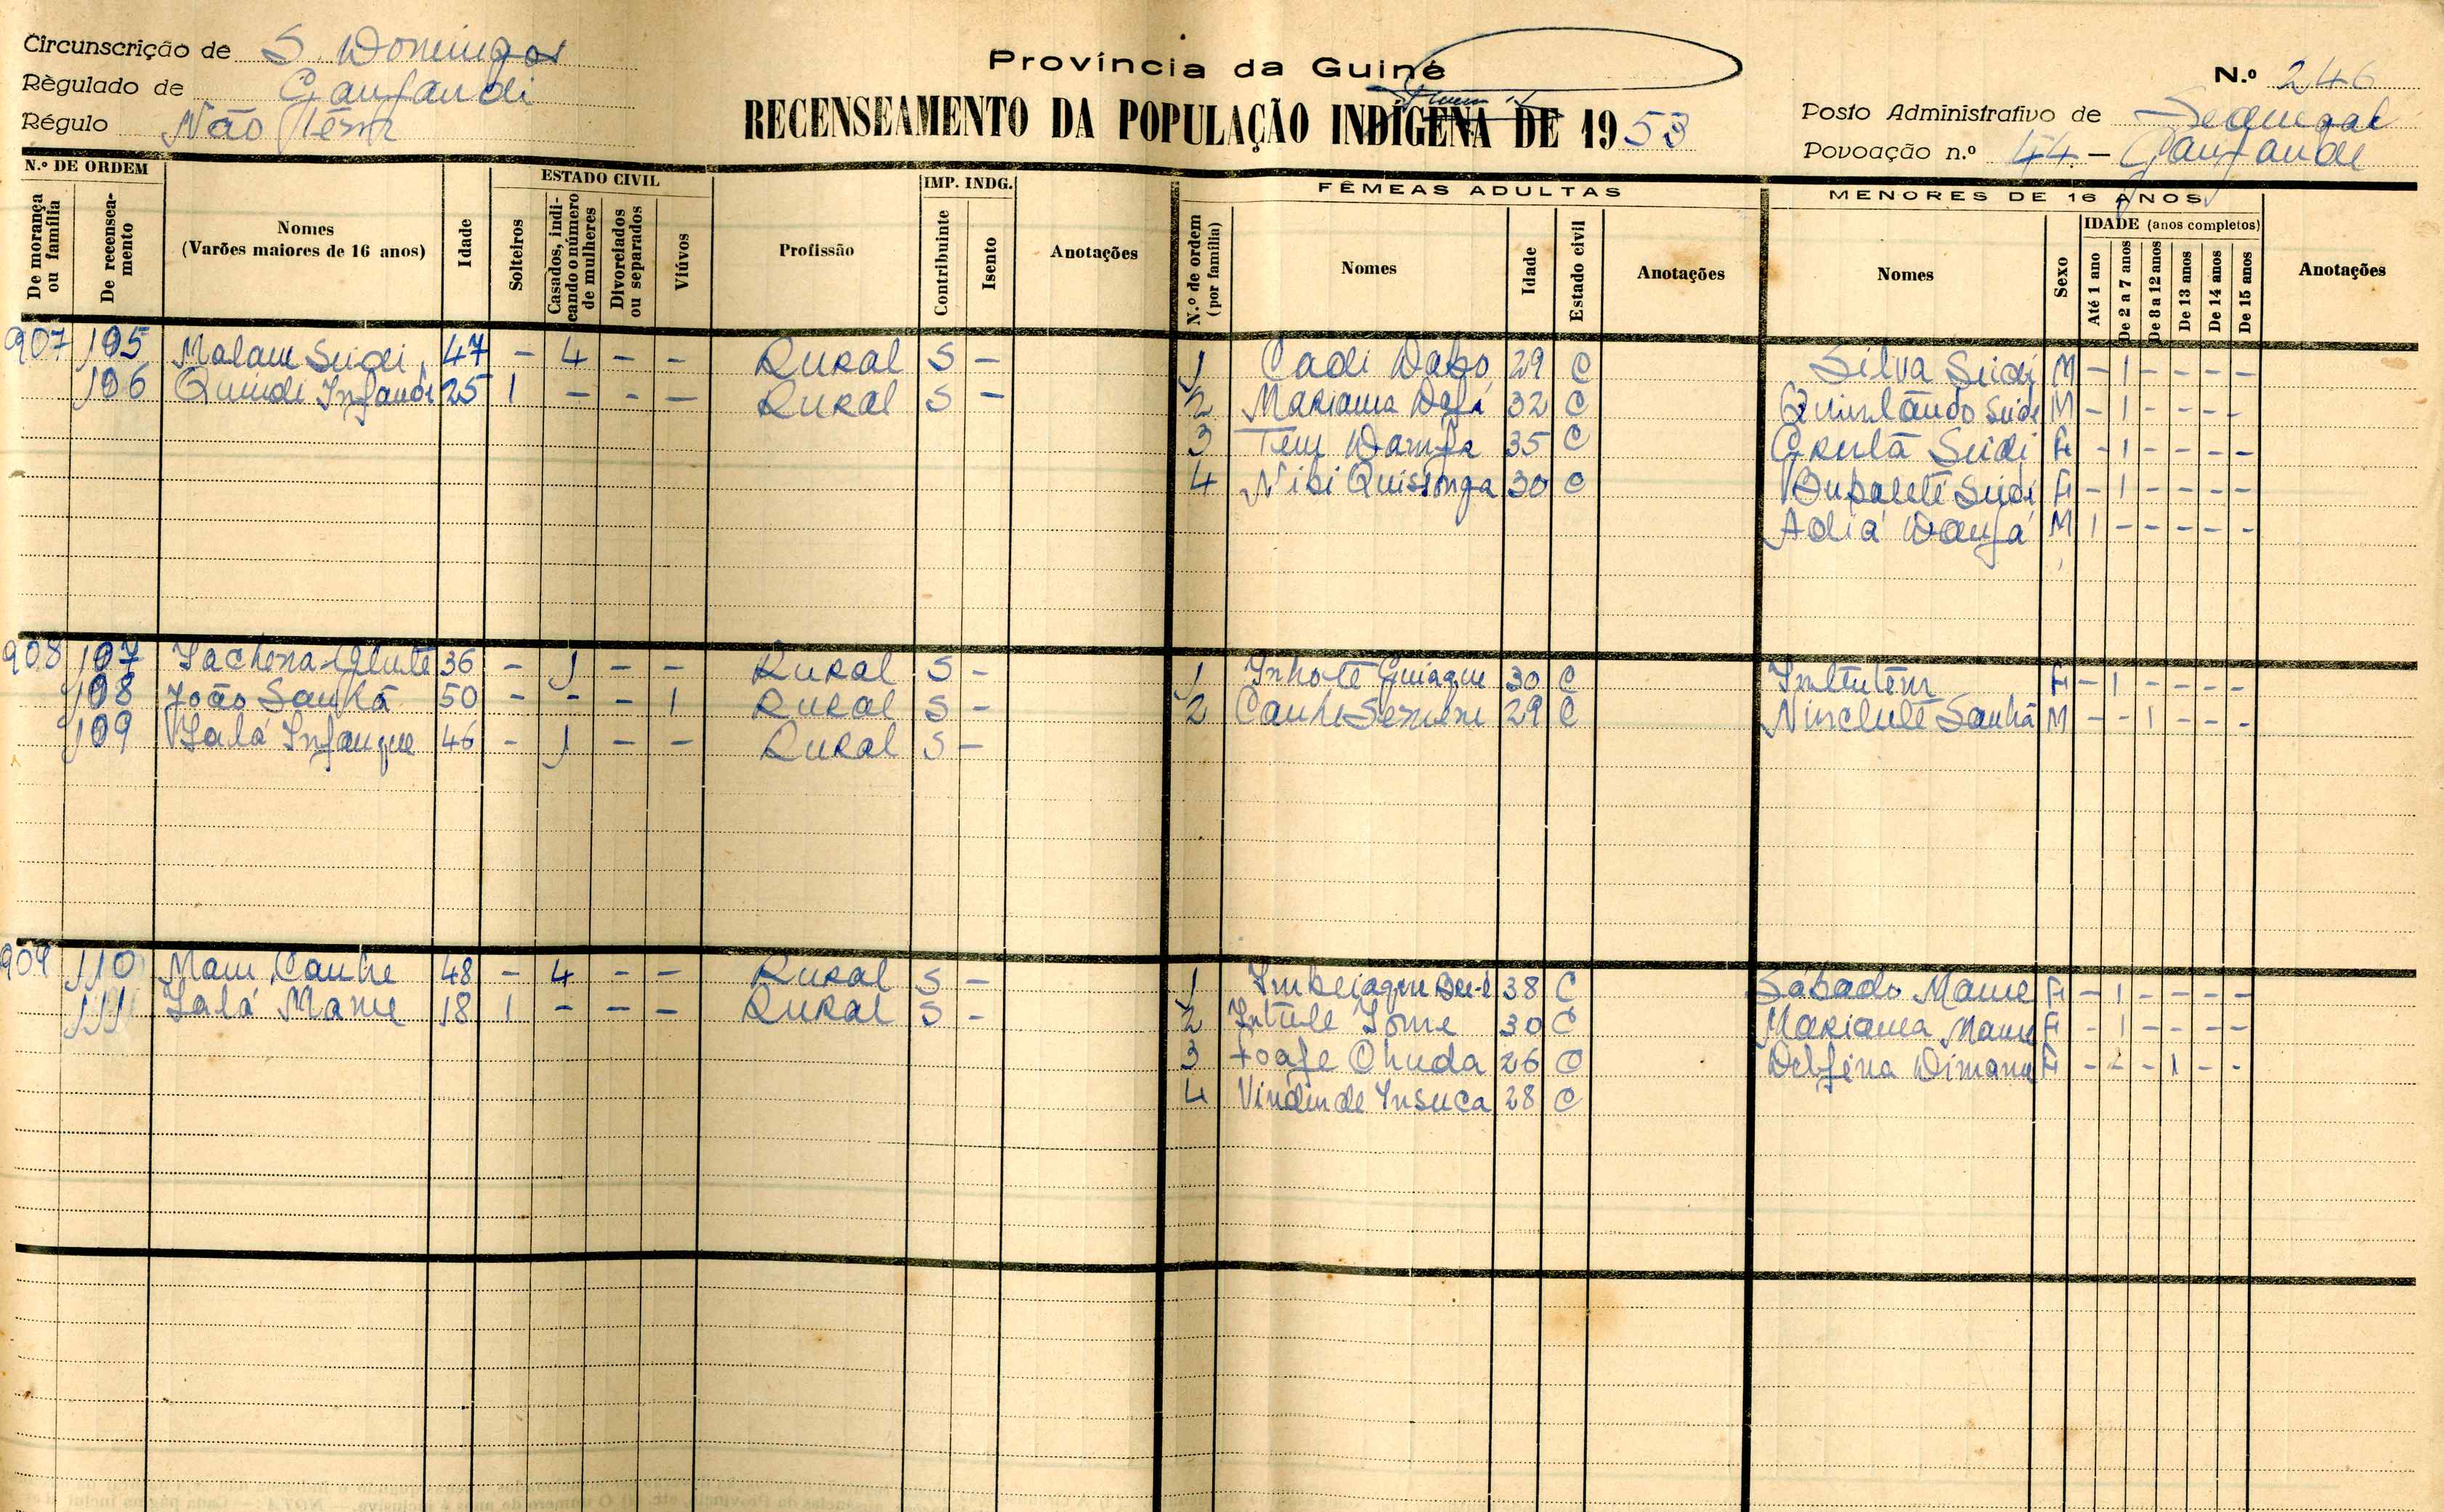 Circunscrição de S. Domingos
Règulado de Ganfandi
Régulo Não Têm
Província da Guiné
RECENSEAMENTO DA POPULAÇÃO INDÍGENA DE 1953
N.º 246
Posto Administrativo de Sedengal
Povoação n.º 44 - Ganfandi
N.º DE ORDEM
De morança ou família
De recenseamento
Nomes
(Varões maiores de 16 anos)
Idade
ESTADO CIVIL
Solteiros
Casados, indicando o número de mulheres
Divorciados ou separados
Viúvos
Profissão
IMP. INDG.
Contribuinte
Isento
Anotações
FÊMEAS ADULTAS
N.º de ordem (por família)
Nomes
Idade
Estado civil
Anotações
MENORES DE 16 ANOS
Nomes
Sexo
IDADE (anos completos)
Até 1 ano
De 2 a 7 anos
De 8 a 12 anos
De 13 anos
De 14 anos
De 15 anos
Anotações
907 105 Malam Seidi 47 - 4 - - Rural S - 1 Cadi Dabo 29 C Silva Seidi M - 1 - - - -
106 Quindi Infandi 25 1 - - - Rural S - 2 Mariama Dafá 32 C Quintãndo Seidi M - 1 - - - -
3 Tem Damfa 35 C Grultã Seidi F - 1 - - - -
4 Nibi Quissonga 30 C Bupaletê Seidi F - 1 - - - -
Adiá Danfá M 1 - - - - -
908 107 36 - 1 - - Rural S - 1 Inhotê Guiaque 30 C Imtutêm F - 1 - - - -
108 João Sanhá 50 - - - 1 Rural S - 2 Canhe 29 C Ninclutê Sanhá M - - 1 - - -
109 Lalá Infanque 46 - 1 - - Rural S -
909 110 Mam Canhe 48 - 4 - - Rural S - 1 38 C Sábado Mame F - 1 - - - -
111 Lalá Mame 18 1 - - - Rural S - 2 Intule Tome 30 C Mariama Mame F - 1 - - - -
3 Foafe Ohuda 26 C Delfina Dimama F - - - 1 - -
4 Vindinde Insuca 28 C